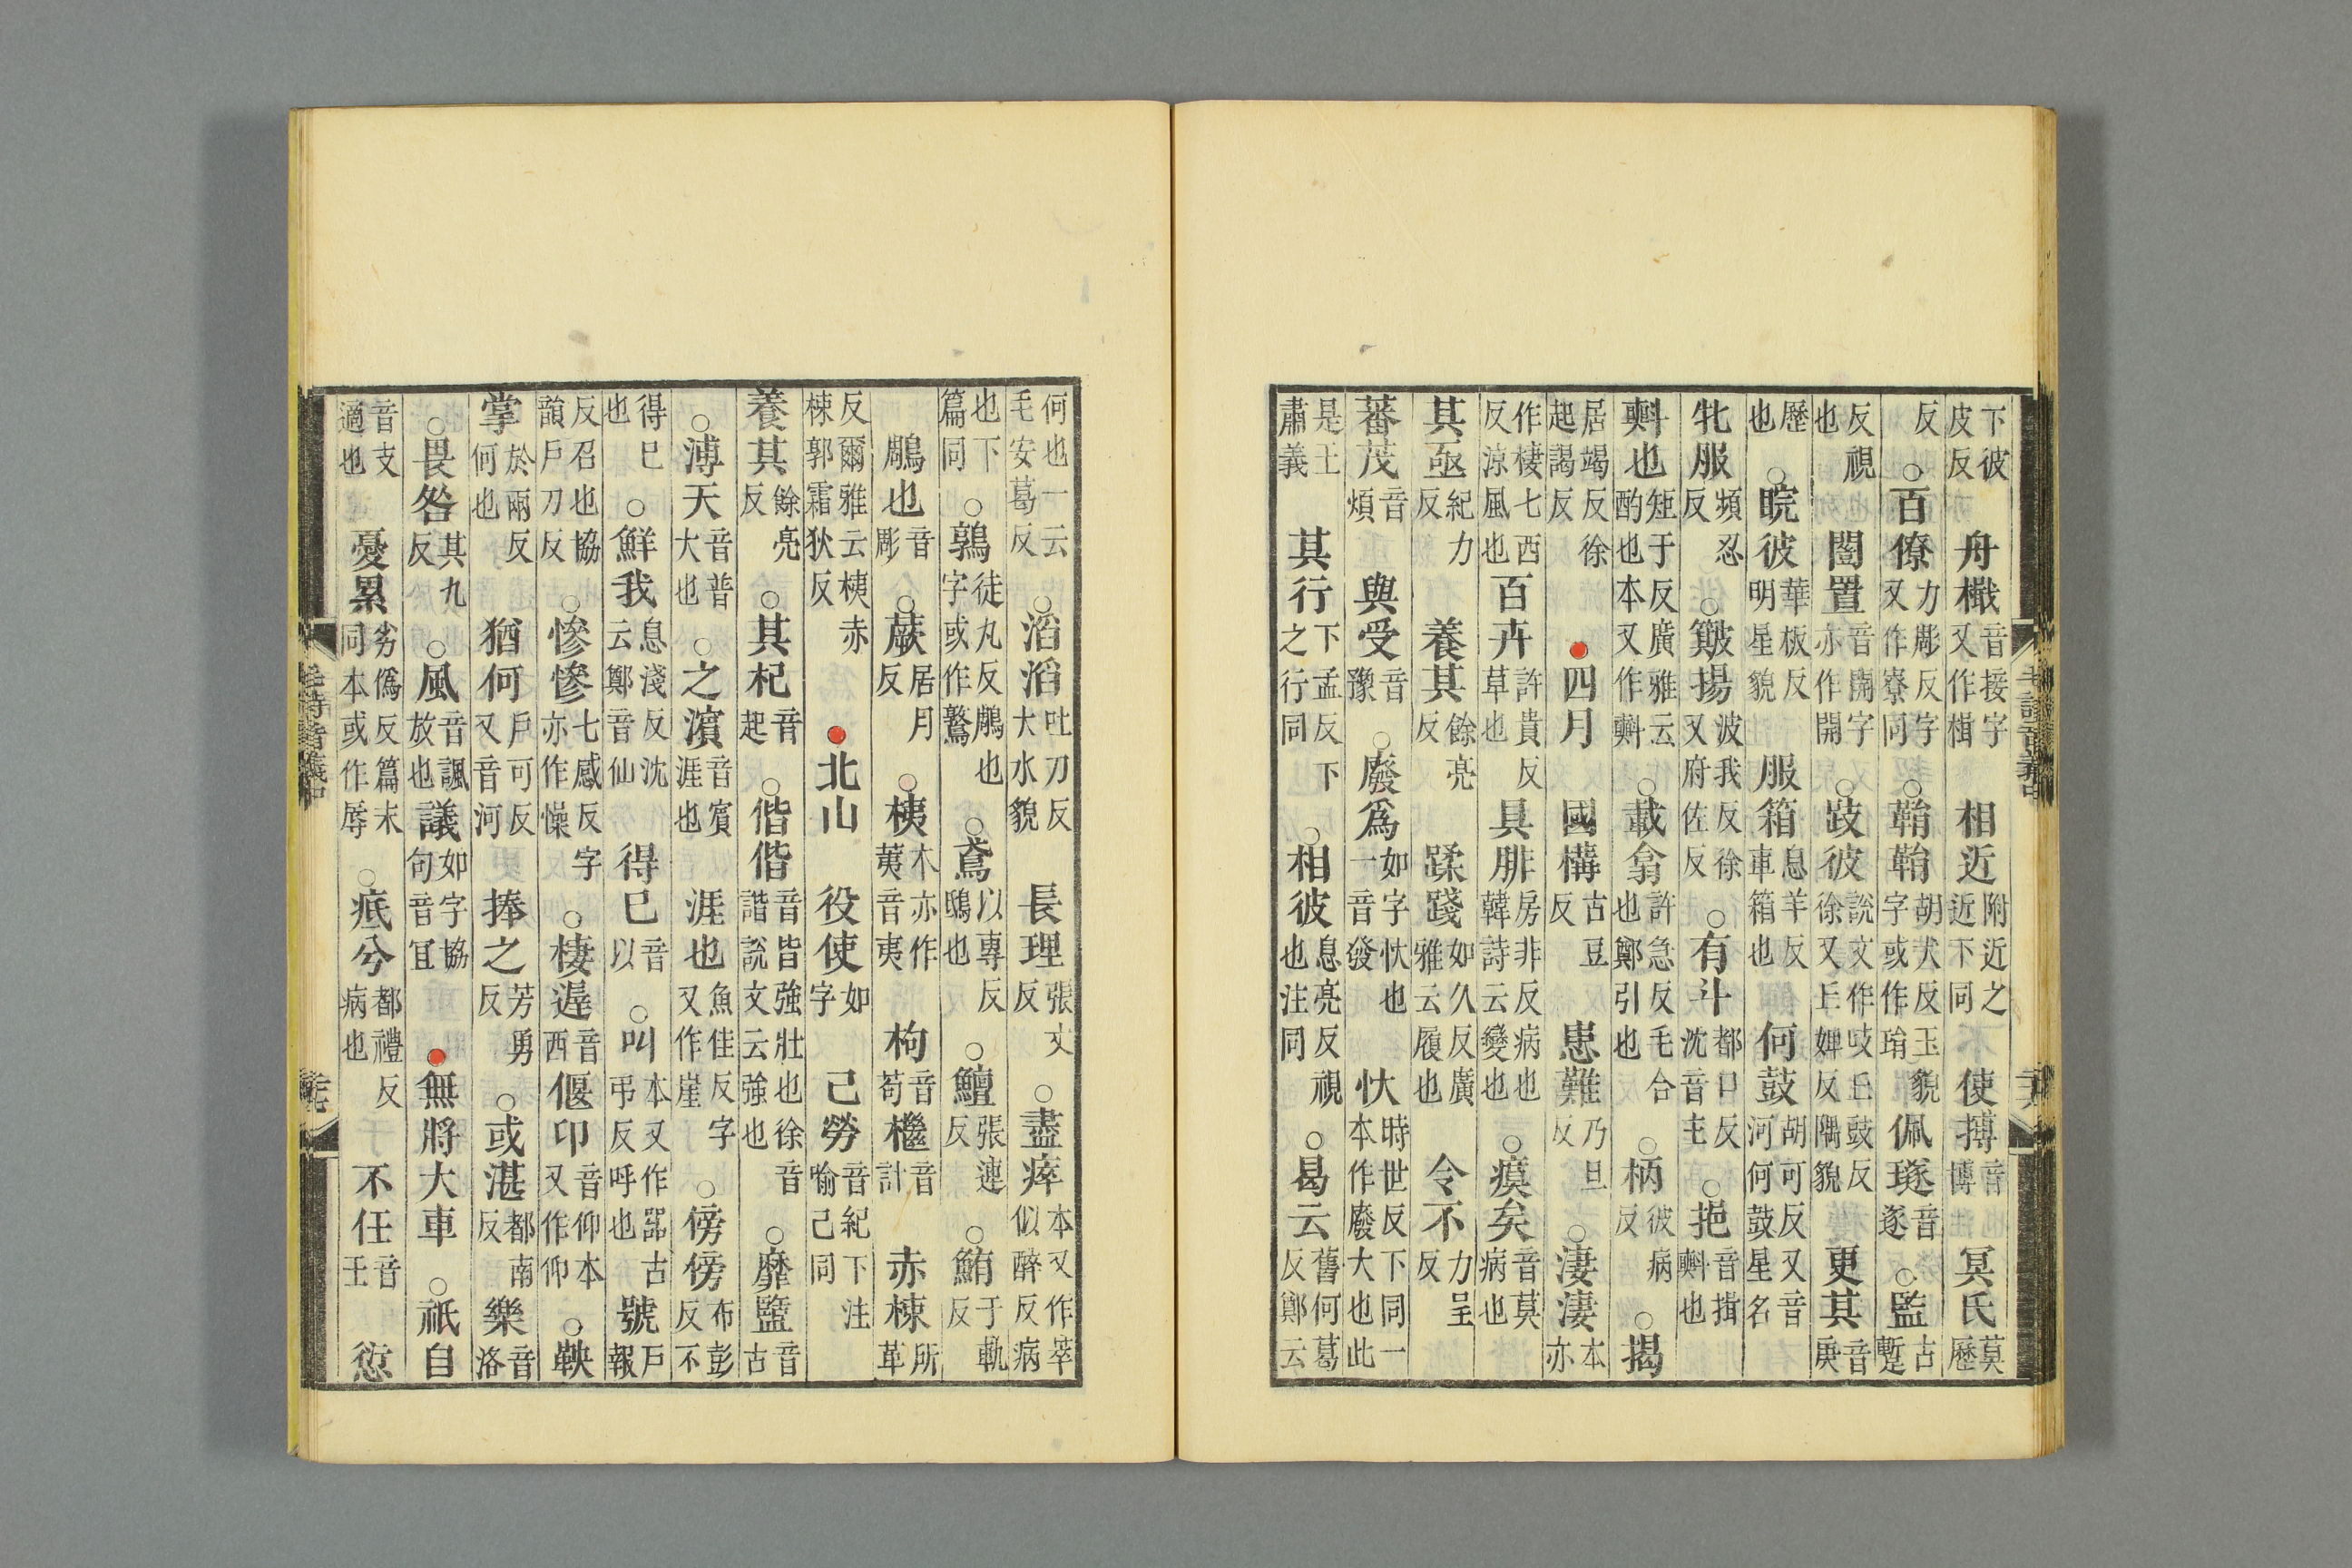 下彼皮反 舟檝音接字又作楫 相近附近之近下同 使搏音博 冥氏莫歷
反○百僚力彫反字又作寮同○鞙鞙胡犬反玉貌字或作琄 佩璲音遂○監古蹔
反視也 闓置音開字亦作開○跂彼説文作岐丘豉反徐又丘婢反隅貌 更其音庚
歷也○睆彼華板反明星貌 服箱息羊反車箱也 何鼓胡可反又音河何鼓星名
牝服頻忍反○簸揚波我反徐又府佐反○有斗都口反沈音主○挹音揖㪺也
㪺也矩于反廣雅云酌也本又作㪺○載翕許急反毛合也鄭引也○柄彼病反○揭
居竭反徐起謁反 四月 國構古豆反 患難乃旦反○淒淒本亦
作棲七西反涼風也 百卉許貴反草也 具腓房非反病也韓詩云變也○瘼矣音莫病也
其亟紀力反 養其餘亮反 蹂踐如久反廣雅云履也 令不力呈反
蕃茂音煩 與受音豫○廢爲如字忕也一音發 忕時世反下同一本作廢大也此
是王肅義 其行下孟反下之行同○相彼息亮反視也注同○曷云舊何葛反鄭云
何也一云毛安葛反○滔滔吐刀反大水貌 長理張丈反○盡瘁本又作萃似醉反病
也下篇同○鶉徒丸反鵰也字或作鷻○鳶以專反鴟也○鱣張連反○鮪于軌反
鵰也音彫○蕨居月反○桋木亦作荑音夷 枸音苟 檵音計 赤棟所革
反爾雅云桋赤棟郭霜狄反 北山 役使如字 己勞音紀下注喻己同
養其餘亮反○其杞音起○偕偕音皆強壯也徐音諧説文云強也○靡盬音古
○溥天音普大也○之濱音賓涯也 涯也魚佳反字又作崖○傍傍布彭反不
得已也○鮮我息淺反沈云鄭音仙 得已音以○叫本又作嘂古弔反呼也 號戶報
反召也協韻戶刀反○慘慘七感反字亦作懆○棲遲音西 偃卬音仰本又作仰○鞅
掌於兩反何也 猶何戶可反又音河 捧之芳勇反○或湛都南反 樂音洛
○畏咎其九反○風音諷放也 議如字協句音宜 無將大車○祇自
音支適也 憂累劣僞反篇末同本或作辱○疧兮都禮反病也 不任音壬 愆